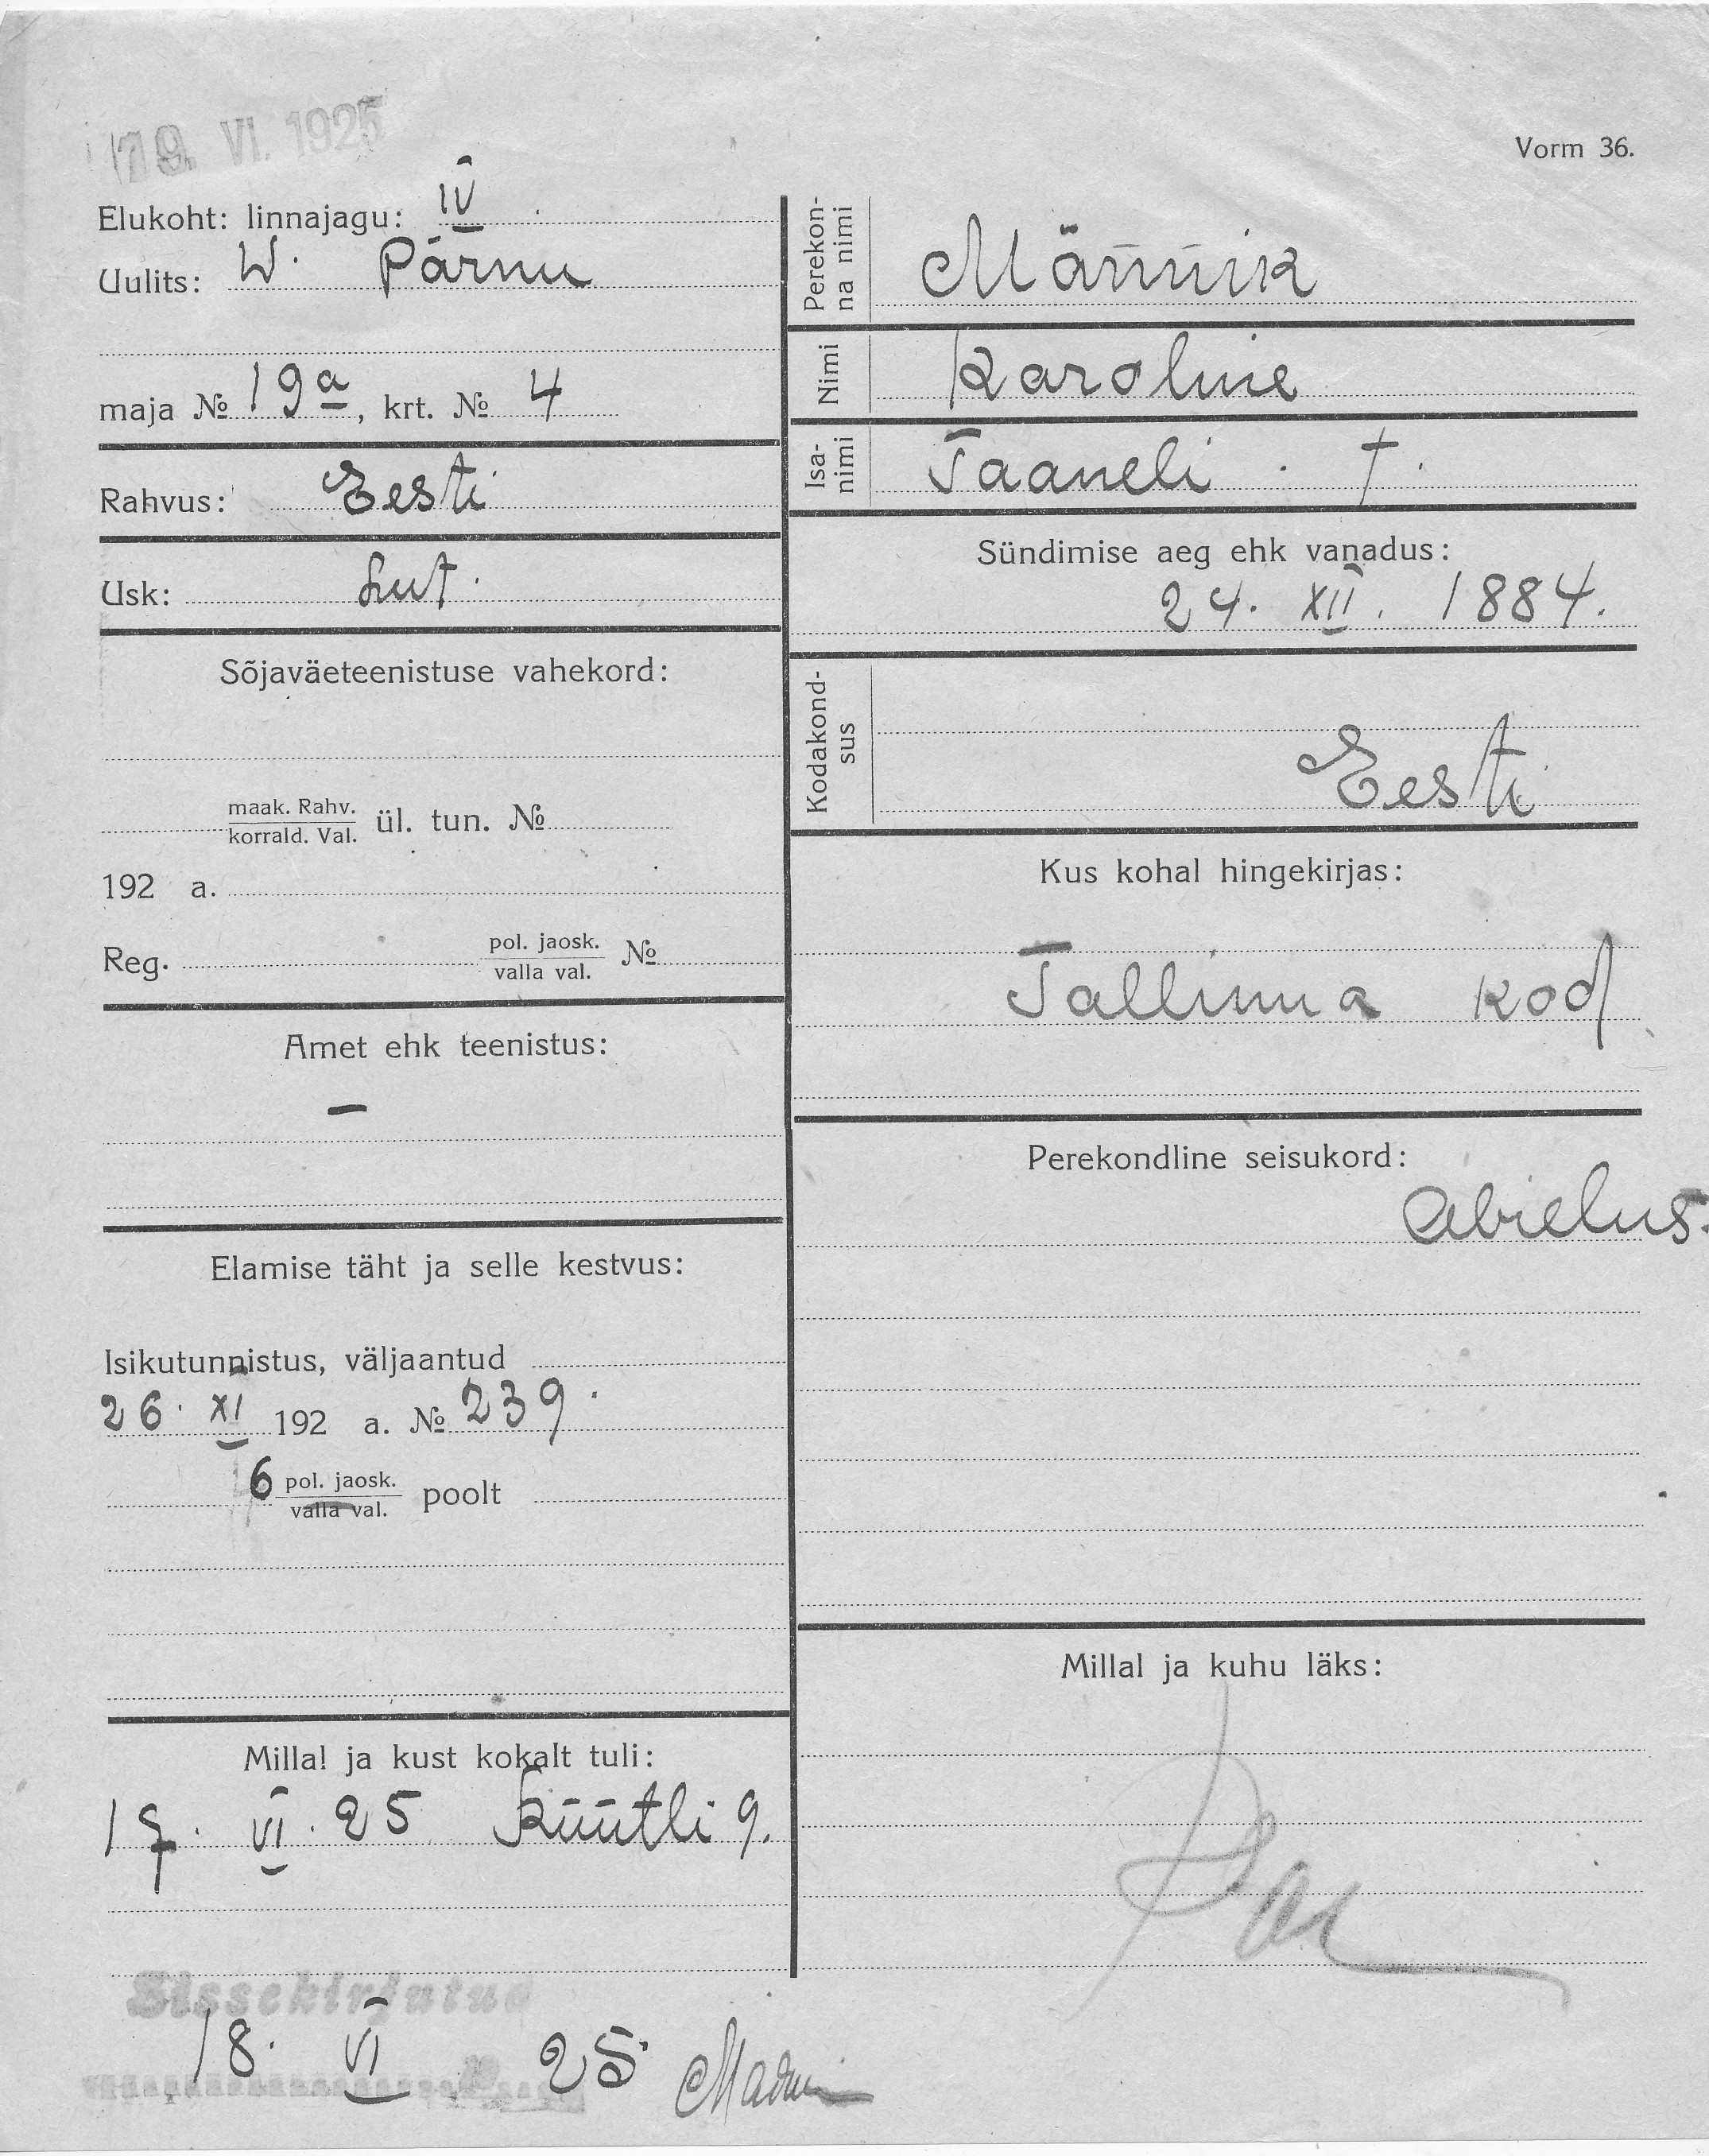 19. VI. 1925
Vorm 36.
Elukoht: linnajagu: IV
Uulits: W. Pärnu
maja № 19a, krt. № 4
Rahvus: Eesti
Usk: Lut.
Sõjaväeteenistuse vahekord:
maak. Rahv.
korrald. Val. ül. tun. №
192 a.
Reg. pol. jaosk.
valla val. №
Amet ehk teenistus:
—
Elamise täht ja selle kestvus:
Isikutunnistus, väljaantud
26. XI 192 a. № 239.
6 pol. jaosk.
valla val. poolt
Millal ja kust kokalt tuli:
17. VI. 25 Rüütli 9.
Sissekirjutud
18. VI 25.
Perekon-
na nimi
Männik
Nimi
Karoline
Isa-
nimi
Jaaneli. †.
Sündimise aeg ehk vanadus:
24. XII. 1884.
Kodakond-
sus
Eesti
Kus kohal hingekirjas:
Tallinna kod
Perekondline seisukord:
Abielus.
Millal ja kuhu läks: